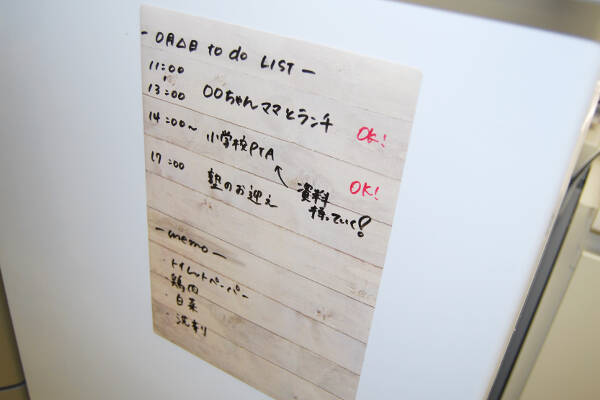 - 〇月△日 to do LIST -
11:00
13:00 〇〇ちゃんママとランチ OK!
14:00〜 小学校PTA
17:00 塾のお迎え OK!
資料
持っていく!
- memo -
・トイレットペーパー
・鶏肉
・白菜
・洗剤